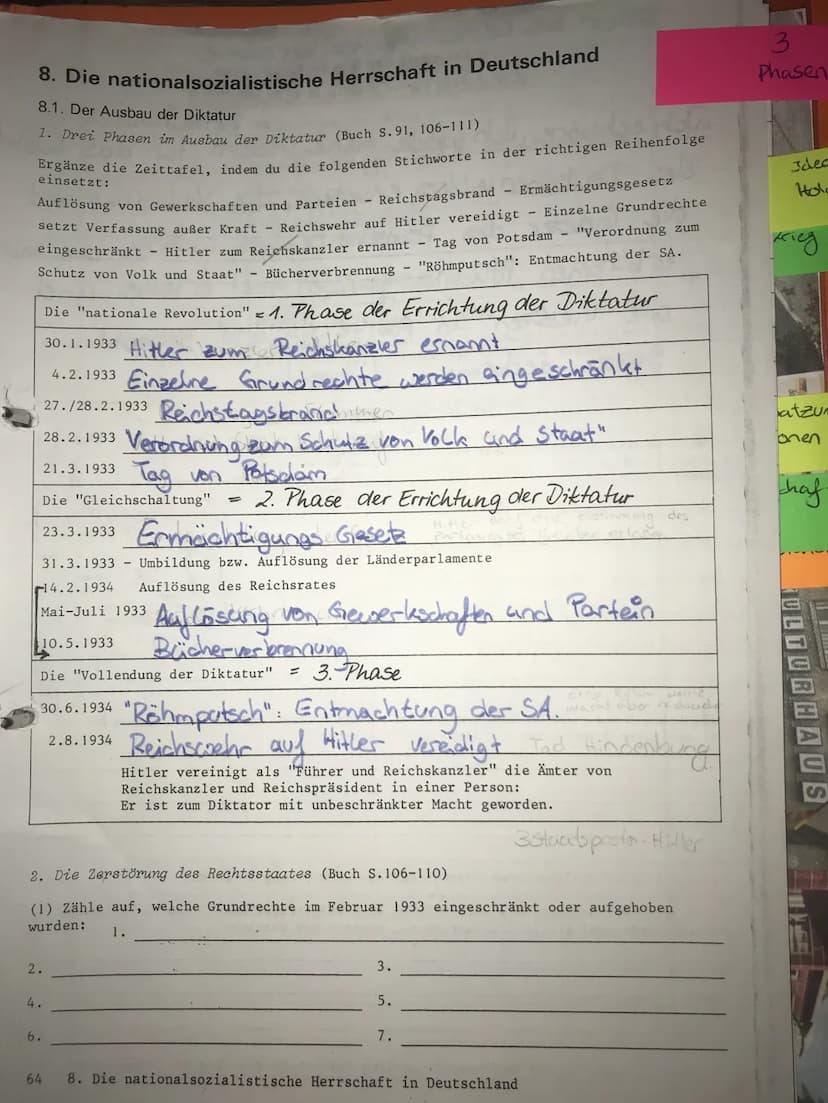 8. Die nationalsozialistische Herrschaft in Deutschland
3
Phasen
8.1. Der Ausbau der Diktatur
1. Drei Phasen im Ausbau der Diktatur (Buch S.91, 106-111)
Ergänze die Zeittafel, indem du die folgenden Stichworte in der richtigen Reihenfolge
einsetzt:
Auflösung von Gewerkschaften und Parteien - Reichstagsbrand - Ermächtigungsgesetz
setzt Verfassung außer Kraft - Reichswehr auf Hitler vereidigt - Einzelne Grundrechte
eingeschränkt - Hitler zum Reichskanzler ernannt - Tag von Potsdam - "Verordnung zum
Schutz von Volk und Staat" - Bücherverbrennung - "Röhmputsch": Entmachtung der SA.
Die "nationale Revolution" = 1. Phase der Errichtung der Diktatur
30.1.1933 Hitler zum Reichskanzler ernannt
4.2.1933 Einzelne Grundrechte werden eingeschränkt
27./28.2.1933 Reichstagsbrand
28.2.1933 Verordnung zum Schutz von Volk und Staat"
21.3.1933 Tag von Potsdam
Die "Gleichschaltung" = 2. Phase der Errichtung der Diktatur
23.3.1933 Ermächtigungs Gesetz
31.3.1933 - Umbildung bzw. Auflösung der Länderparlamente
14.2.1934 Auflösung des Reichsrates
Mai-Juli 1933 Auflösung von Gewerkschaften und Partein
10.5.1933 Bücherverbrennung
Die "Vollendung der Diktatur" = 3. Phase
30.6.1934 "Röhmputsch": Entmachtung der SA.
2.8.1934 Reichswehr auf Hitler vereidigt Tod Hindenburg
Hitler vereinigt als "Führer und Reichskanzler" die Ämter von
Reichskanzler und Reichspräsident in einer Person:
Er ist zum Diktator mit unbeschränkter Macht geworden.
2. Die Zerstörung des Rechtsstaates (Buch S.106-110)
(1) Zähle auf, welche Grundrechte im Februar 1933 eingeschränkt oder aufgehoben
wurden: 1.
2. 3.
4. 5.
6. 7.
64 8. Die nationalsozialistische Herrschaft in Deutschland
krieg
onen
ULTURHAUS